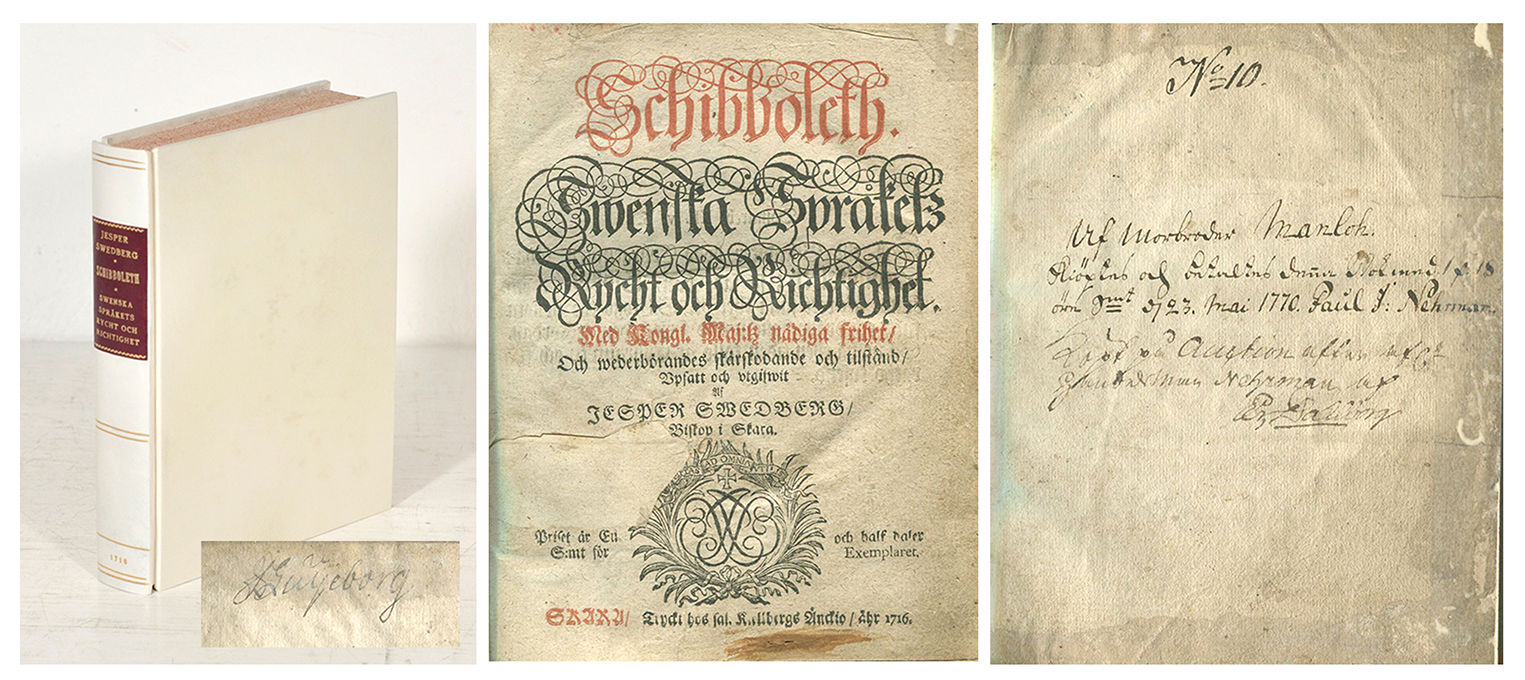 JESPER
SWEDBERG
SCHIBBOLETH
SWENSKA
SPRÅKETS
RYCHT OCH
RICHTIGHET
1716
Schibboleth.
Swenska Språketz
Rycht och Richtighet.
Med Kongl. Maj:tz nådiga frihet/
Och wederbörandes skärskodande och tilstånd/
Vpsatt och vtgifwit
Af
JESPER SWEDBERG/
Biskop i Skara.
AD OMNIA
Priset är En och half daler
S:mt för Exemplaret.
SKARA/ Tryckt hos sal. Kiellbergs Änckio / åhr 1716.
No 10.
Af Morbroder Manloh.
Kiöptes och betaltes denna Bok med
örh Smt d 23. Mai 1770. Paul J: Nehrman.
Köpt på Auction efter
Nehrman af